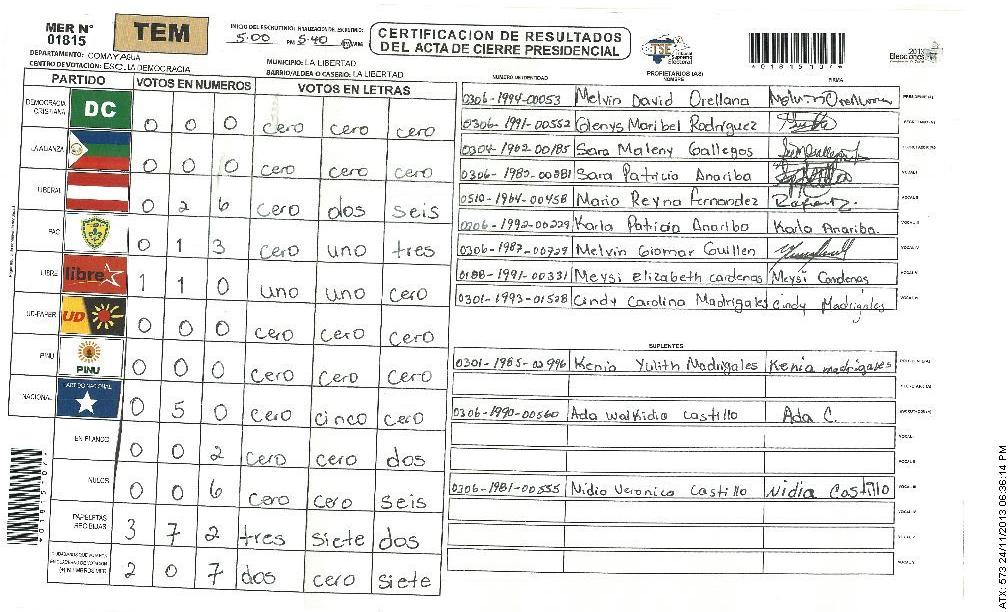 MER N° 01815
TEM
INICIO DEL ESCRUTINIO: 5:00 PM
FINALIZACION DE ESCRUTINIO: 5:40
CERTIFICACION DE RESULTADOS
DEL ACTA DE CIERRE PRESIDENCIAL
TSE Tribunal Supremo Electoral
2013 Elecciones
*01815107*
DEPARTAMENTO: COMAYAGUA
MUNICIPIO: LA LIBERTAD
CENTRO DE VOTACION: ESCUELA DEMOCRACIA
BARRIO/ALDEA O CASERIO: LA LIBERTAD
PARTIDO VOTOS EN NUMEROS VOTOS EN LETRAS
DEMOCRACIA CRISTIANA DC 0 0 0 cero cero cero
LA ALIANZA 0 0 0 cero cero cero
LIBERAL 0 2 6 cero dos seis
PAC 0 1 3 cero uno tres
LIBRE libre 1 1 0 uno uno cero
UD-FAPER UD 0 0 0 cero cero cero
PINU PINU 0 0 0 cero cero cero
NACIONAL PARTIDO NACIONAL 0 5 0 cero cinco cero
EN BLANCO 0 0 2 cero cero dos
NULOS 0 0 6 cero cero seis
PAPELETAS RECIBIDAS 3 7 2 tres siete dos
2 0 7 dos cero siete
NUMERO IDENTIDAD PROPIETARIOS (AS) NOMBRE FIRMA
0306-1994-00053 Melvin David Orellana Melvin Orellana PRESIDENTE(A)
0306-1991-00552 Glenys Maribel Rodriguez SECRETARIO(A)
0304-1962-00185 Sara Maleny Gallegos ESCRUTADOR(A)
0306-1985-00881 Sara Patricia Anariba VOCAL I
0510-1964-00458 Mario Reyna Fernandez VOCAL II
0306-1992-00229 Karla Patricia Anariba Karla Anariba. VOCAL III
0306-1987-00729 Melvin Giomar Guillen VOCAL IV
1991-00331 Meysi Elizabeth cardenas Meysi Cardenas VOCAL V
0301-1993-01528 Cindy Carolina Madrigales Cindy Madrigales VOCAL VI
SUPLENTES
0301-1985-00996 Kenia Yulith Madrigales Kenia madrigales PRESIDENTE(A)
SECRETARIO(A)
0306-1990-00560 Ada Walkidia castillo Ada C. ESCRUTADOR(A)
VOCAL I
VOCAL II
0306-1981-00555 Nidia Veronica Castillo Nidia Castillo VOCAL III
VOCAL IV
VOCAL V
VOCAL VI
*01815107*
ATX: 573 24/11/2013 06:36:14 PM